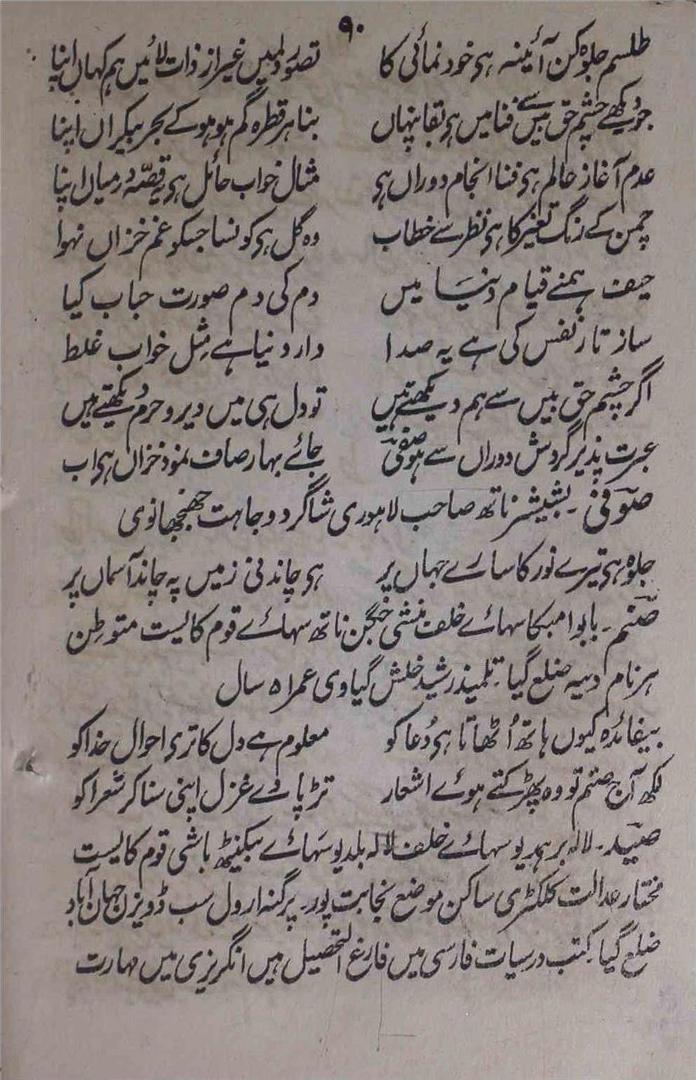 ۹۰
طلسم جلوہ کن آئینہ ہی خود نمائی کا تصور دلمیں غیر از ذات لائیں ہم کہاں اپنا
جو دیکھے چشم حق بیں سے فنا میں ہی بقا پنہاں بنا ہر قطرہ گم ہو ہو کے بحر بیکراں اپنا
عدم آغاز عالم ہی فنا انجام دوراں ہی مثال خواب حائل ہی قصّہ درمیاں اپنا
چمن کے رنگ تغیر کا ہی نظر سے خطاب وہ گل ہی کونسا جسکو غم خزاں نہوا
حیف ہمنے قیام دنیا میں دم کی دم صورت حباب کیا
ساز تار نفس کی ہے یہ صدا دار دنیا ہے مثل خواب غلط
اگر چشم حق بیں سے ہم دیکھتے ہیں تو دل ہی میں دیر و حرم دیکھتے ہیں
عبرت پذیر گردش دوراں سے ہو صفی جائے بہار صاف نمود خزاں ہی اب
صوفی۔ بشیشر ناتھ صاحب لاہوری شاگرد وجاہت جھنجھانوی
جلوہ ہی تیرے نور کا سارے جہاں پر ہی چاندنی زمیں پہ چاند آسماں پر
صنم۔ بابو امبکا سہائے خلف منشی جگن ناتھ سہائے قوم کایست متوطن
ہرنام دیہہ ضلع گیا۔ تلمیذ رشید خلش گیاوی عمر ۵۱ سال
بیفائدہ کیوں ہاتھ اُٹھاتا ہی دُعا کو معلوم ہے دل کا تری احوال خدا کو
لکھ آج صنم تو وہ پھڑکتے ہوئے اشعار تڑپا دے غزل اپنی سنا کر شعرا کو
صید۔ لالہ برہمدیو سہائے خلف لالہ بلدیو سہائے بیکنیٹھ باشی قوم کایست
مختار عدالت کلکٹری ساکن موضع نجابت پور۔ پرگنہ ارول سب ڈویزن جہان آباد
ضلع گیا۔ کتب درسیات فارسی میں فارغ التحصیل ہیں انگریزی میں مہارت